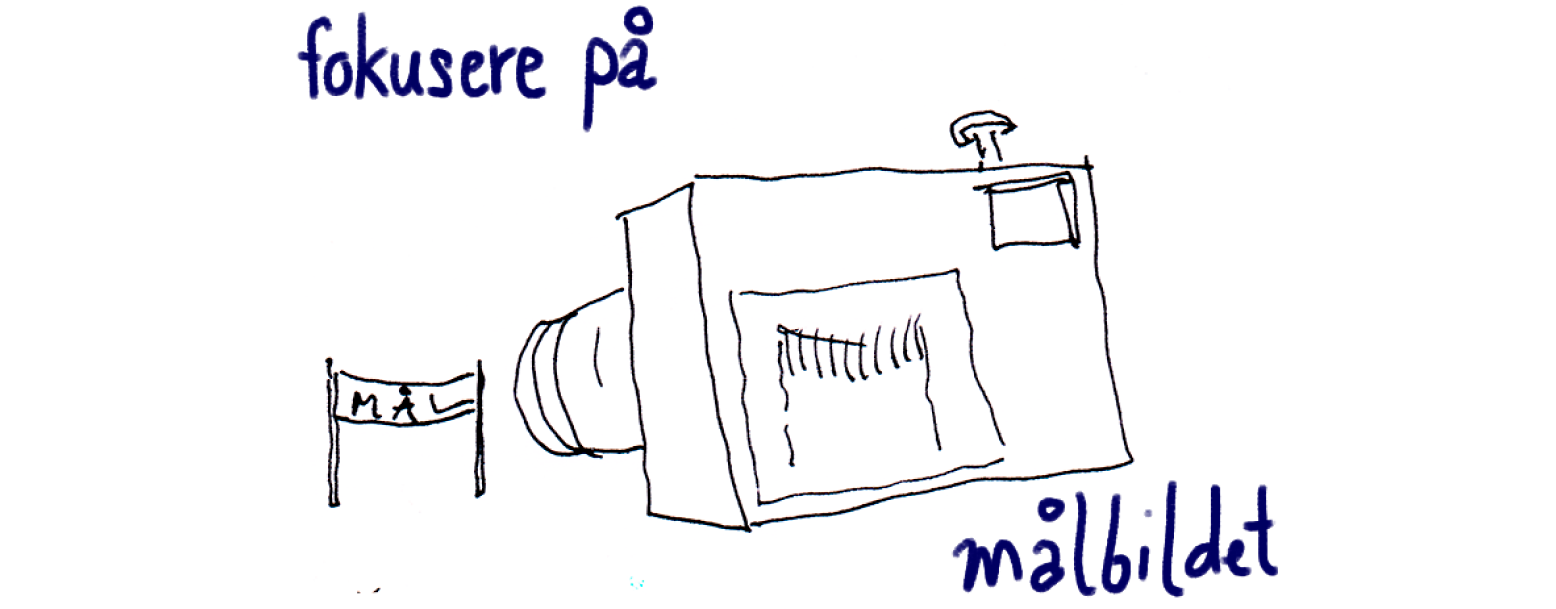 fokusere på
MÅL
målbildet